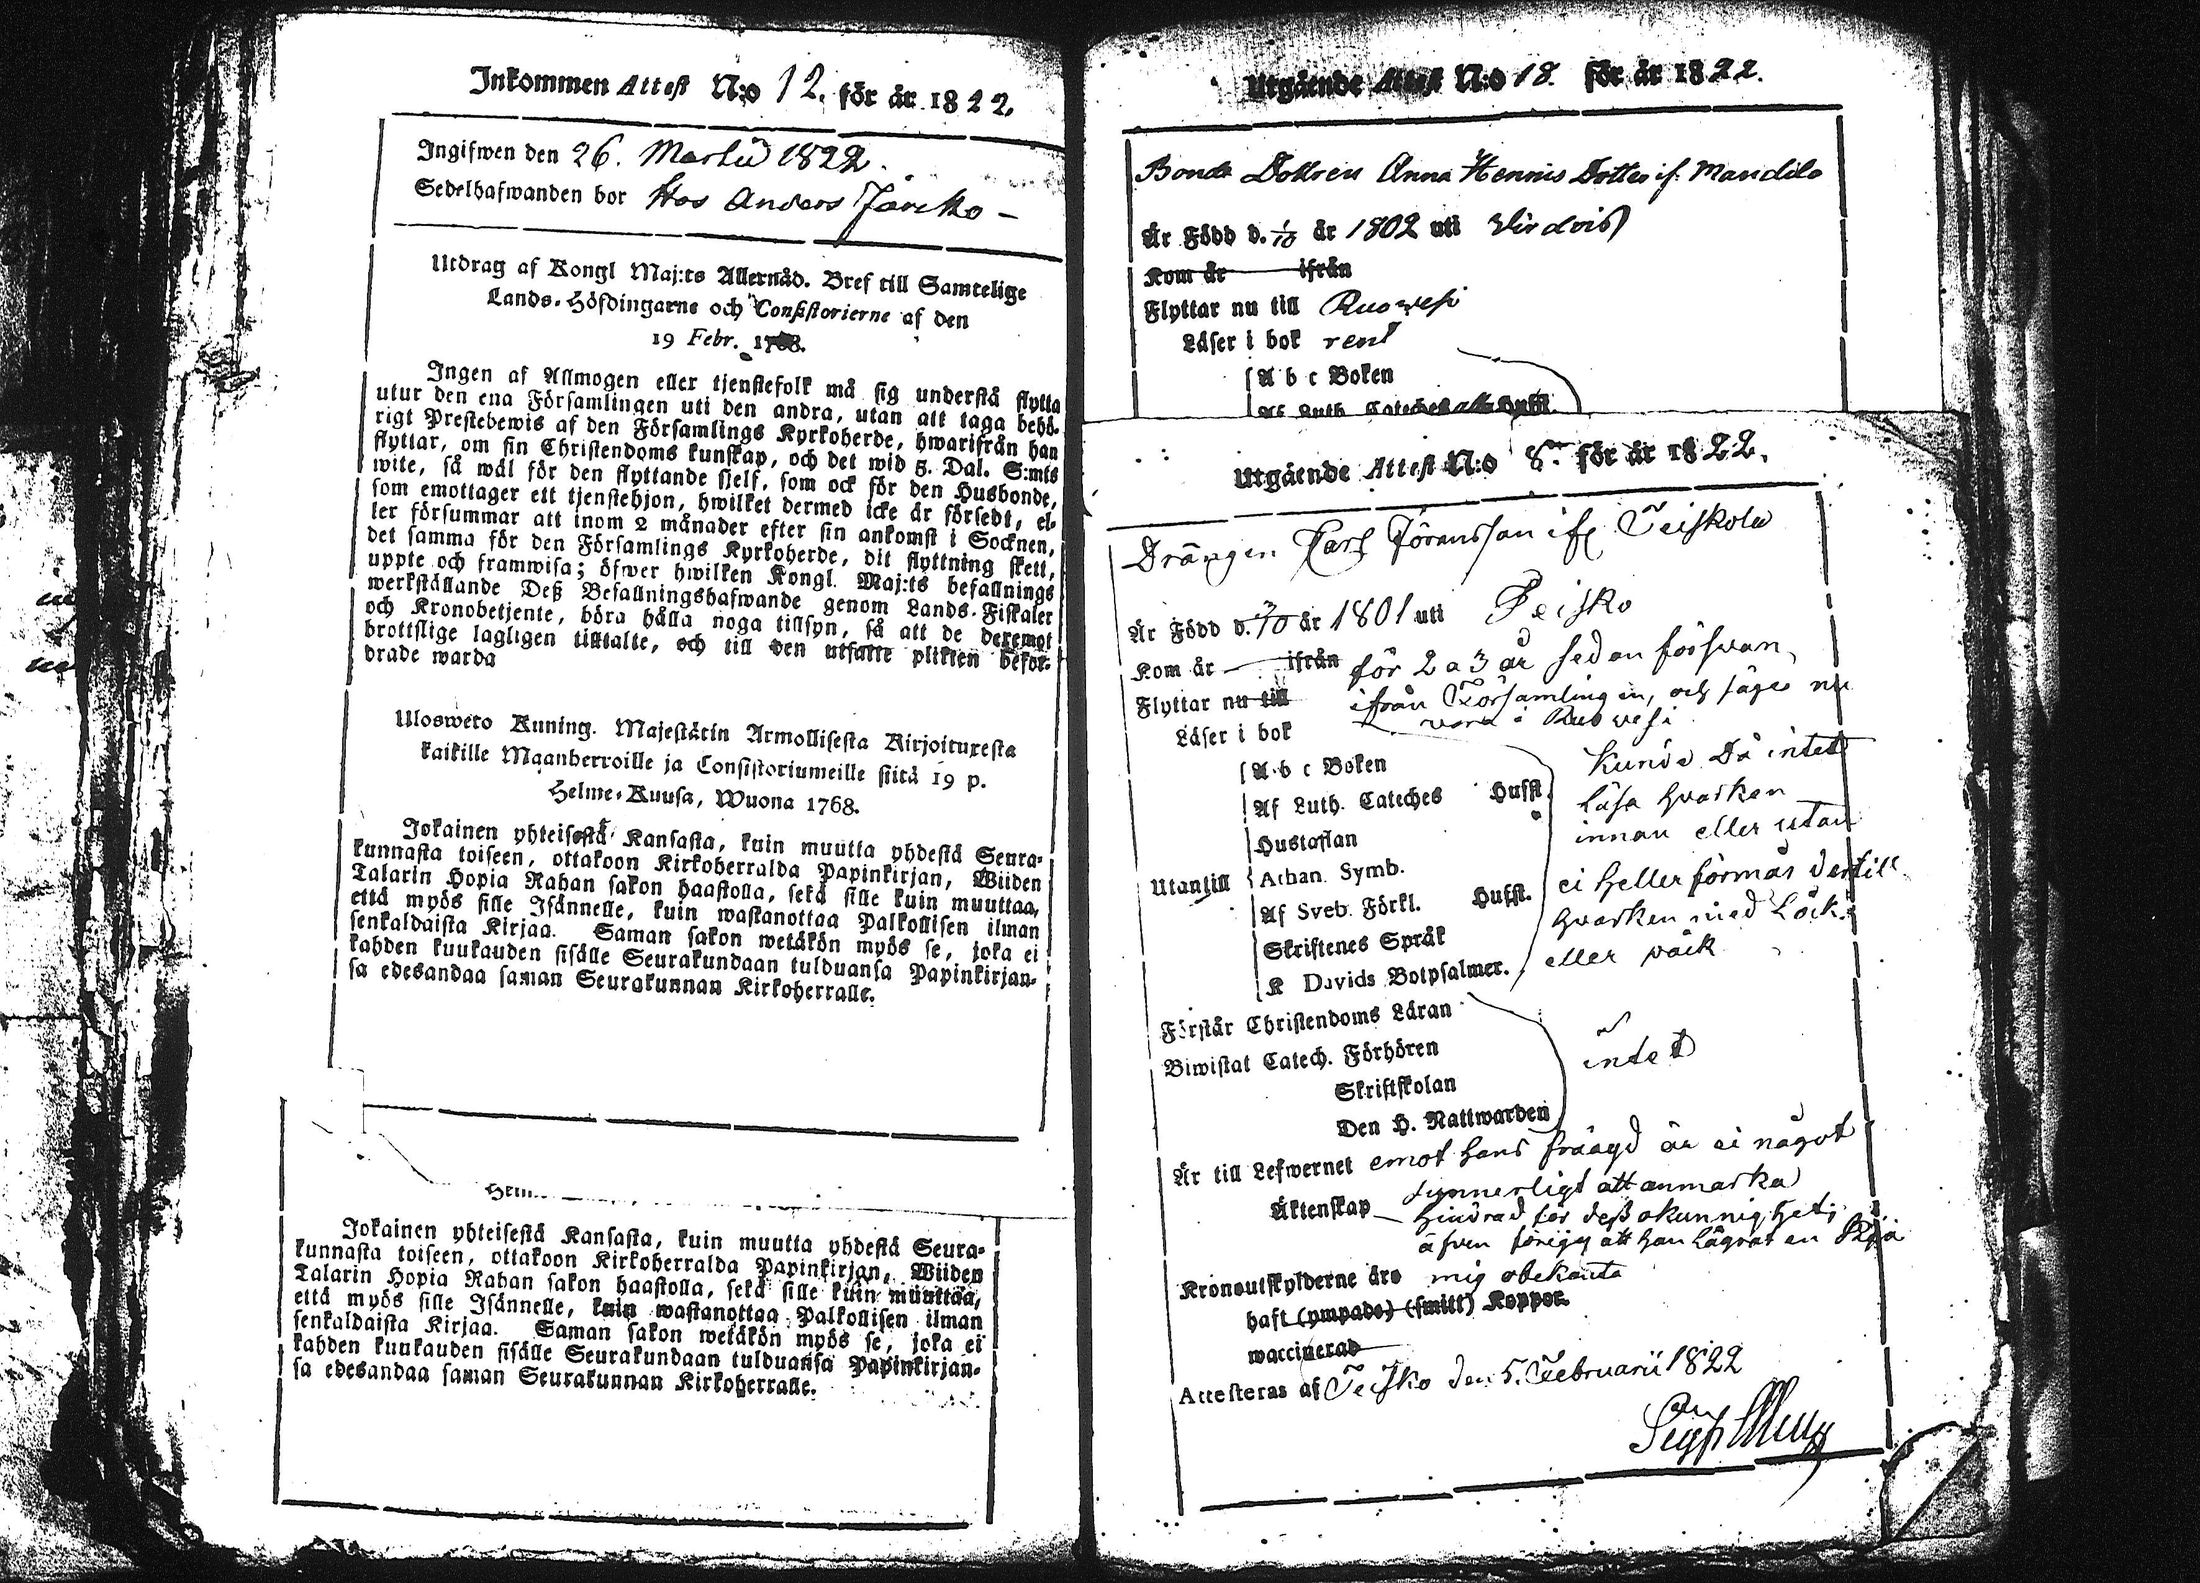 Inkommen Attest N:o 12. för år 1822.
Ingifwen den 26. Martii 1822.
Sedelhafwanden bor Hos Anders Jarcko –
Utdrag af Kongl Maj:ts Allernåd. Bref till Samtelige
Lands-Höfdingarne och Consistorierne af den
19 Febr. 1768.
Ingen af Allmogen eller tjenstefolk må sig understå flytta
utur den ena Församlingen uti den andra, utan att taga behö-
rigt Prestebewis af den Församlings Kyrkoherde, hwarifrån han
flyttar, om sin Christendoms kunskap, och det wid 5. Dal. S:mts
wite, så wäl för den flyttande sjelf, som ock för den Husbonde,
som emottager ett tjenstehjon, hwilket dermed icke är försedt, el-
ler försummar att inom 2 månader efter sin ankomst i Socknen,
det samma för den Församlings Kyrkoherde, dit flyttning skett,
uppte och framwisa; öfwer hwilken Kongl. Maj:ts befallnings
werkställande Deß Befallningshafwande genom Lands-Fiskaler
och Kronobetjente, böra hålla noga tillsyn, så att de deremot
brottslige lagligen tilltalte, och till den utsatte plikten befor-
drade warda
Ulosweto Kuning. Majestätin Armollisesta Kirjoituxesta
kaikille Maanherroille ja Consistoriumeille siitä 19 p.
Helme-Kuusa, Wuona 1768.
Jokainen yhteisestä Kansasta, kuin muutta yhdestä Seura-
kunnasta toiseen, ottakoon Kirkoherralda Papinkirjan, Wiiden
Talarin Hopia Rahan sakon haastolla, sekä sille kuin muuttaa,
että myös sille Isännelle, kuin wastanottaa Palkollisen ilman
senkaldaista Kirjaa. Saman sakon wetäkön myös se, joka ei
kahden kuukauden sisälle Seurakundaan tulduansa Papinkirjan-
sa edesandaa saman Seurakunnan Kirkoherralle.
Jokainen yhteisestä Kansasta, kuin muutta yhdestä Seura-
kunnasta toiseen, ottakoon Kirkoherralda Papinkirjan, Wiiden
Talarin Hopia Rahan sakon haastolla, sekä sille kuin muuttaa,
että myös sille Isännelle, kuin wastanottaa Palkollisen ilman
senkaldaista Kirjaa. Saman sakon wetäkön myös se, joka ei
kahden kuukauden sisälle Seurakundaan tulduansa Papinkirjan-
sa edesandaa saman Seurakunnan Kirkoherralle.
Utgående Attest N:o 18. för år 1822.
Bonde Dottren Anna Hennis Dotter if. Mandila
Är Född d. 1/10 år 1802 uti Virdois
Kom år ifrån
Flyttar nu till Ruowesi
Läser i bok rent
A b c Boken
Af Luth. Cateches Husst.
Utgående Attest N:o 8. för år 1822.
Drängen Carl Jöransson if Teiskola
Är Född d. /10 år 1801 uti Teisko
Kom år ifrån för 2 a 3 år sedan försvan
Flyttar nu till ifrån Församlingen, och säges nu
Läser i bok vara i Ruowesi
A b c Boken Kunde Då intet
Af Luth. Cateches Husst. läsa hvarken
Hustaflan innan eller utan
Utantill Athan. Symb. ei heller förmås dertill
Af Sveb. Förkl. Husst. hvarken med Löck
Skriftenes Språk eller
K Davids Botpsalmer.
Förstår Christendoms Läran
Biwistat Catech. Förhören intet
Skriftskolan
Den H. Nattwarden
Är till Lefwernet emot hans frägd är ei något
synnerligt att anmärka
Äktenskap – hindrad för deß okunnighet;
äfven föregs att han lägrat en
Kronoutskylderne äro mig obekanta
haft (ympade) (smitt) Koppor.
waccinerad
Attesteras af Teisko den 5. Februarii 1822